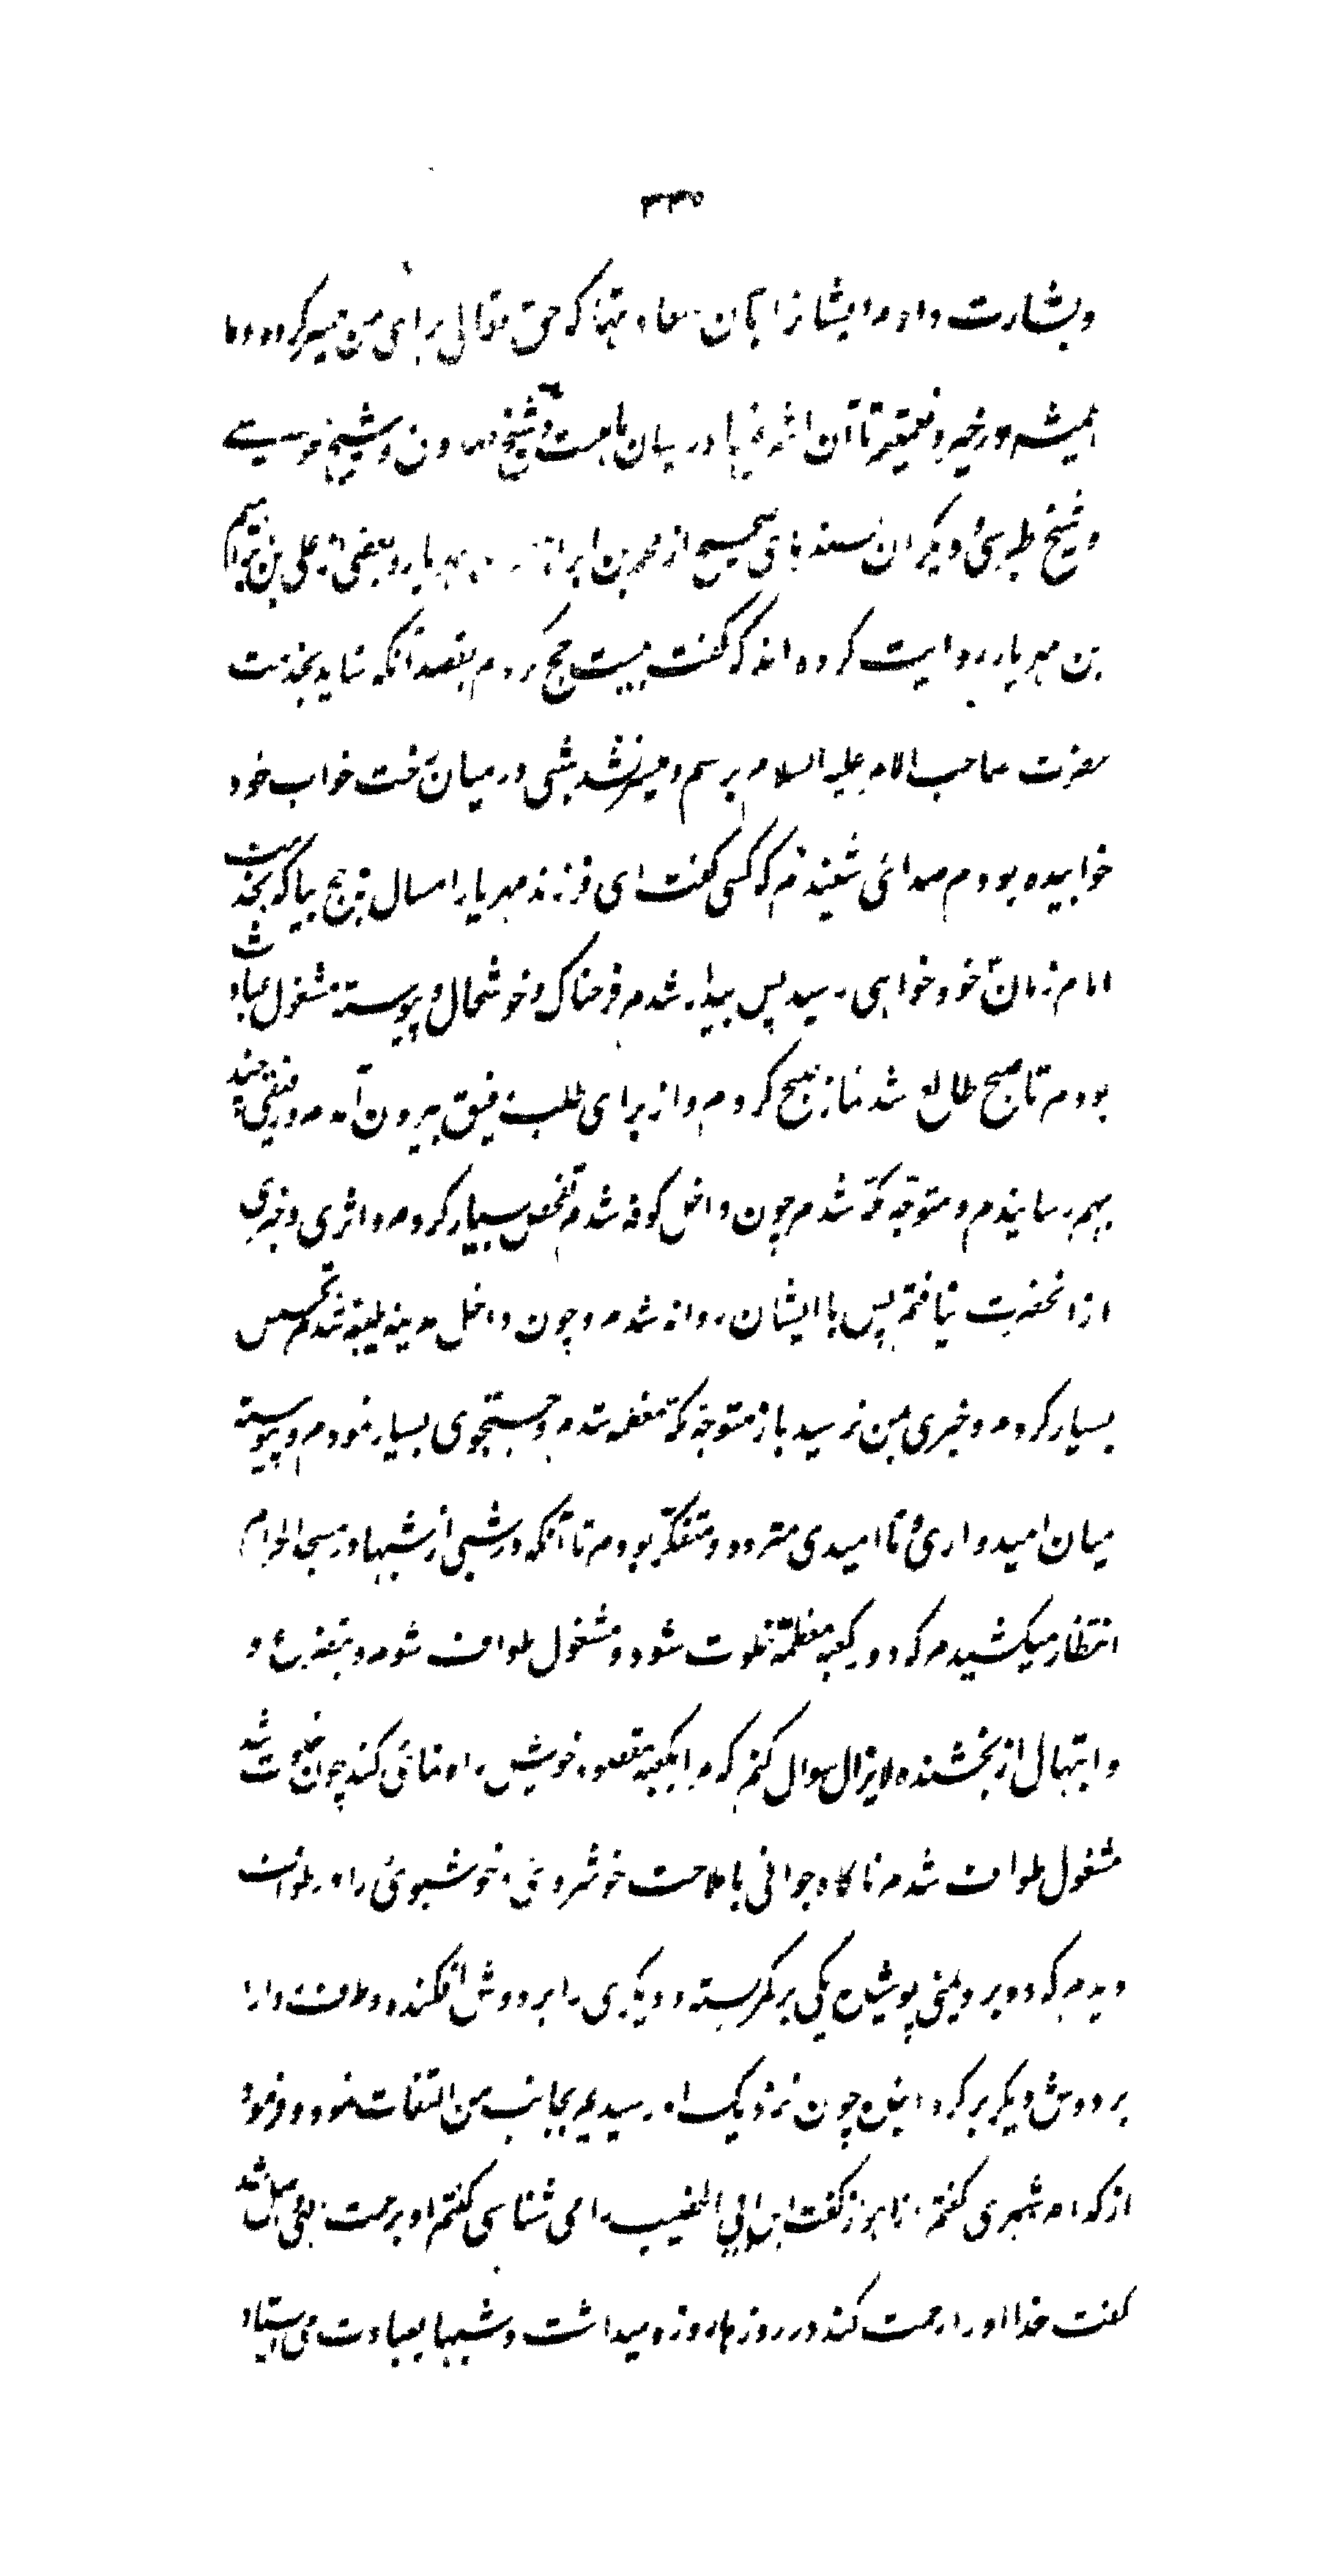 ۳۳۵
و بشارت دادم ایشانرا بآن سعادتها که حق تعالی برای من میسر کرد و ما
همیشه در خیر و نعمتیم تا آن اشرفیها در میان ما هست و شیخ صدوق و شیخ طوسی
و شیخ طبرسی و دیگران بسندهای صحیح از محمد بن ابراهیم بن مهزیار و بعضی از علی بن ابراهیم
بن مهزیار روایت کرده اند که گفت بیست حج کردم بقصد آنکه شاید بخدمت
حضرت صاحب الامر علیه السلام برسم و میسر نشد شبی در میان رخت خواب خود
خوابیده بودم صدائی شنیدم که کسی گفت ای فرزند مهزیار امسال بحج بیا که بخدمت
امام زمان خود خواهی رسید پس بیدار شدم فرحناک و خوشحال و پیوسته مشغول عبادت
بودم تا صبح طالع شد نماز صبح کردم و از برای طلب رفیق بیرون آمدم و رفیقی چند
بهم رسانیدم و متوجه مکه شدم چون داخل کوفه شدم تفحص بسیار کردم و اثری و خبری
از آنحضرت نیافتم پس با ایشان روانه شدم و چون داخل مدینه طیبه شدم تجسس
بسیار کردم و خبری بمن نرسید باز متوجه مکه معظمه شدم و جستجوی بسیار نمودم و پیوسته
میان امیدواری و ناامیدی متردد و متفکر بودم تا آنکه در شبی از شبها در مسجد الحرام
انتظار میکشیدم که دور کعبه معظمه خلوت شود و مشغول طواف شوم و بتضرع و
و ابتهال از بخشنده لایزال سوال کنم که مرا بکعبه مقصود خویش راهنمائی کند چون خلوت شد
مشغول طواف شدم ناگاه جوانی با ملاحت خوشروئی و خوشبوئی را در طواف
دیدم که دو برد یمنی پوشیده یکی بر کمر بسته و دیگری را بر دوش افکنده و طرف ردا را
بر دوش دیگر برگردانیده چون نزدیک او رسیدم بجانب من التفات نمود و فرمود
از کدام شهری گفتم از اهواز گفت ابن ابی الخضیب را می شناسی گفتم او برحمت الهی واصل شد
گفت خدا او را رحمت کند در روزها روزه میداشت و شبها بعبادت می ایستاد